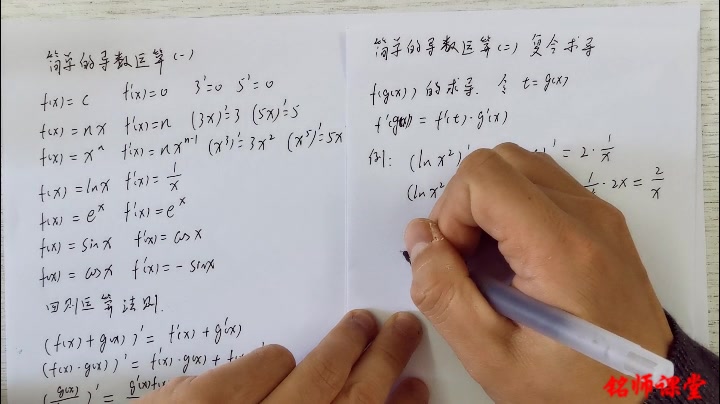 简单的导数运算(一)
f(x) = c f'(x)=0 3'=0 5'=0
f(x) = nx f'(x)=n (3x)'=3 (5x)'=5
f(x) = xⁿ f'(x)=nxⁿ⁻¹ (x³)'=3x² (x⁵)'=5x
f(x) = lnx f'(x)= 1/x
f(x) = eˣ f'(x)=eˣ
f(x) = sinx f'(x)= cosx
f(x) = cosx f'(x)=-sinx
四则运算法则.
(f(x)+g(x))' = f'(x)+g'(x)
(f(x)·g(x))' = f'(x)·g(x)+
(g(x)/ )' = g'(x)f(x)
简单的导数运算(二) 复合求导
f(g(x)) 的求导. 令 t=g(x)
f'(g(x)) = f'(t)·g'(x)
例: (lnx²)' )' = 2·1/x
(lnx² 1/ ·2x = 2/x
铭师课堂